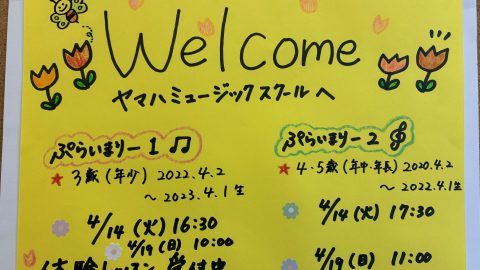 Welcome
ヤマハミュージックスクールへ
ぷらいまりー1
★ 3歳(年少) 2022.4.2
~ 2023.4.1生
4/14(火)16:30
4/19(日)10:00
体験レッスン受付中
ぷらいまりー2
★ 4・5歳(年中・年長) 2020.4.2
~ 2022.4.1生
4/14(火)17:30
4/19(日)11:00